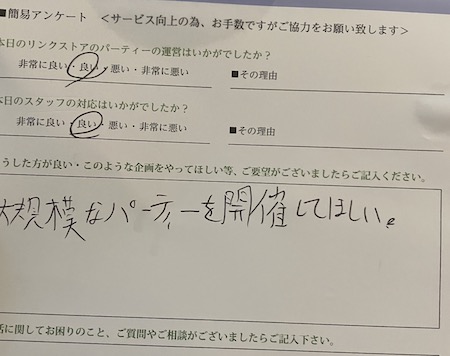 ■簡易アンケート <サービス向上の為、お手数ですがご協力をお願い致します>
本日のリンクストアのパーティーの運営はいかがでしたか?
非常に良い・良い・悪い・非常に悪い ■その理由
本日のスタッフの対応はいかがでしたか?
非常に良い・良い・悪い・非常に悪い ■その理由
うした方が良い・このような企画をやってほしい等、ご要望がございましたらご記入ください。
大規模なパーティーを開催してほしい。
活に関してお困りのこと、ご質問やご相談がございましたらご記入下さい。